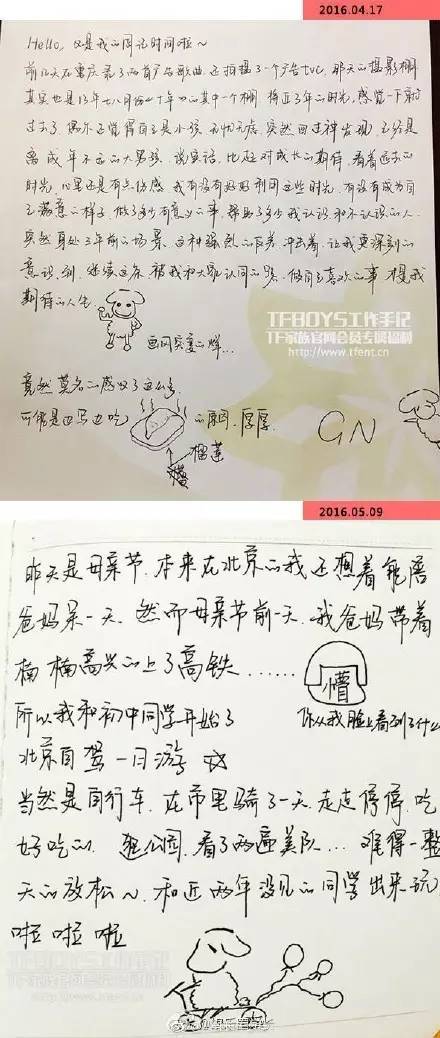 2016.04.17
Hello, 又是我的周记时间啦~
前几天在重庆录了两首广告歌曲, 还拍摄了一个广告TVC, 那天的摄影棚
其实也是13年七八月份《十年》的其中一个棚 将近3年的时光, 感觉一下就
过去了. 偶尔还觉得自己是小孩 无忧无虑 突然回过神发现, 已经是
离成年不远的大男孩. 说实话, 比起对成长的期待, 看着远去的
时光, 心里还是有点伤感 我有没有好好利用这些时光, 有没有成为自
己满意的样子, 做了多少有意义的事, 帮助了多少我认识和不认识的人.
突然身处3年前的场景, 这种强烈的反差冲击着, 让我更深刻的
意识到, 继续走在被我和大家认同的路, 做自己喜欢的事 才是我
期待的人生.
画风突变的烊...
TFBOYS工作手记
TF家族官网会员专属福利
http://www.tfent.cn
竟然莫名的感叹了这么多
可能是边写边吃 的原因. 厚厚.
榴莲
GN
2016.05.09
昨天是母亲节. 本来在北京的我还想着能陪
爸妈呆一天. 然而母亲节前一天. 我爸妈带着
楠楠高兴的上了高铁......
懵
所以我和初中同学开始了
你从我脸上看到了什么
北京自驾一日游
当然是自行车. 在市里骑了一天. 走走停停. 吃
好吃的. 逛公园. 看了两遍美队... 难得一整
天的放松~. 和近两年没见的同学出来玩.
啦啦啦
TFBOYS工作手记
TF家族官网会员专属福利